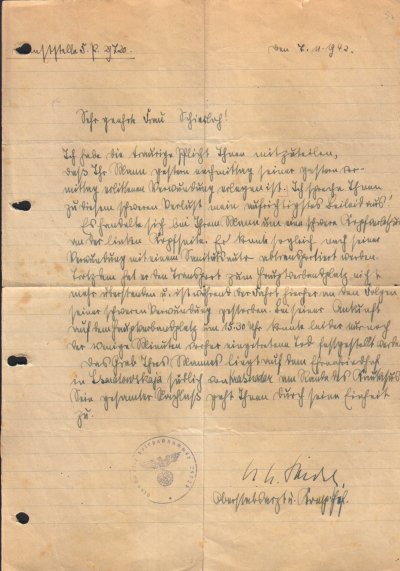 Dienststelle F. P. 29720.
den 7. 11. 1942.
Sehr geehrte Frau Schierloh!
Ich habe die traurige Pflicht Ihnen mitzuteilen,
daß Ihr Mann gestern nachmittag seiner gestern vor-
mittag erlittenen Verwundung erlegen ist. Ich spreche Ihnen
zu diesem schweren Verlust mein aufrichtigstes Beileid aus.
Es handelte sich bei Ihrem Mann um eine schwere Kopfverletzung
an der linken Kopfseite. Er konnte sogleich nach seiner
Verwundung mit einem Sanitätsauto abtransportiert werden.
Trotzdem hat er den Transport zum Hauptverbandplatz nicht
mehr überstanden u. ist während der Fahrt hierher an den Folgen
seiner schweren Verwundung gestorben. Bei seiner Ankunft
auf dem Hauptverbandplatz um 15.30 Uhr konnte leider nur noch
der wenige Minuten vorher eingetretene Tod festgestellt werden.
Das Grab Ihres Mannes liegt auf dem Ehrenfriedhof
in südlich von am Rande des Kaukasus.
Sein gesamter Nachlaß geht Ihnen durch seine Einheit
zu.
Oberstabsarzt u.